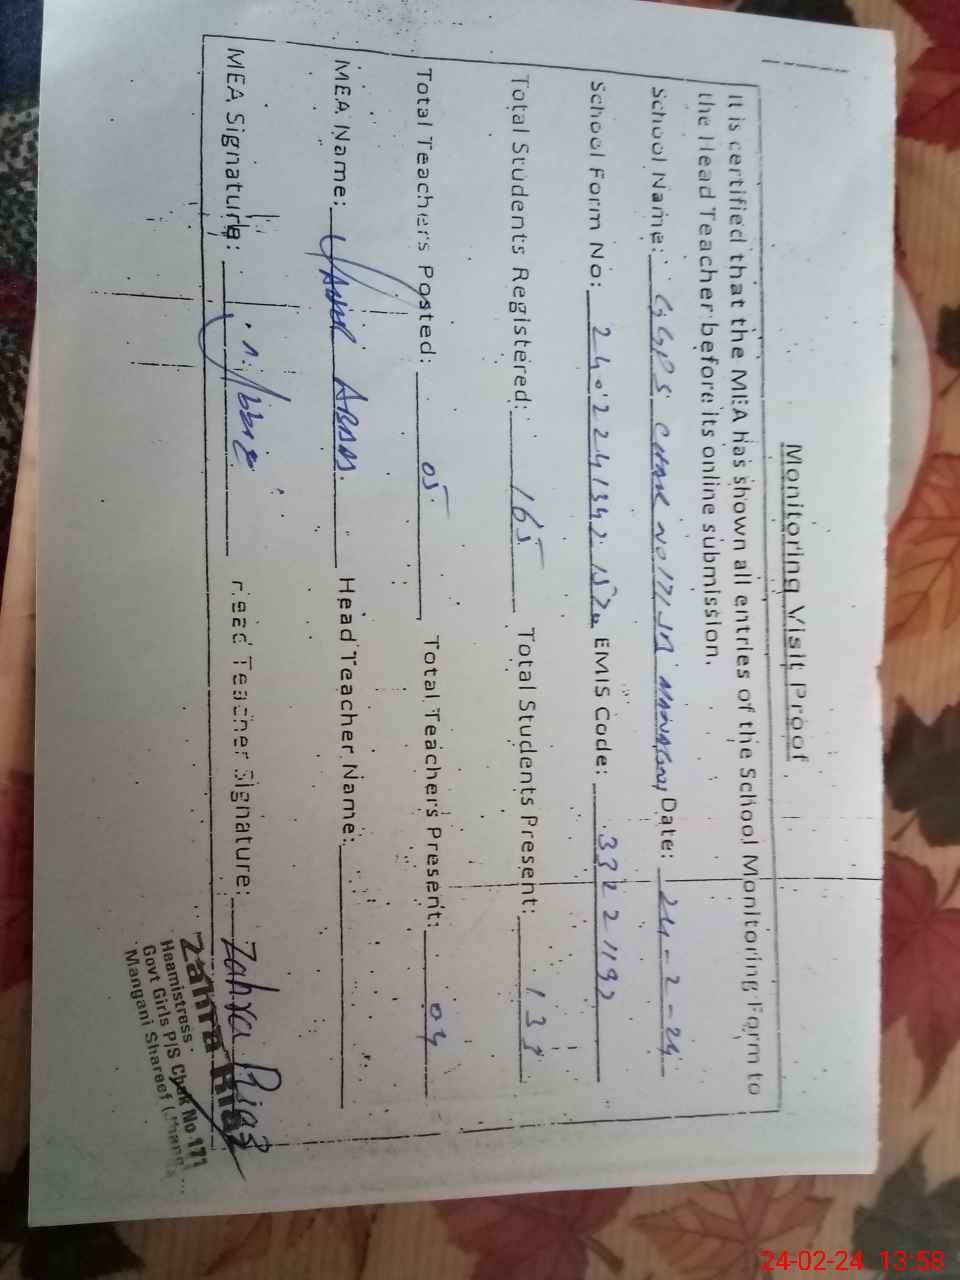 Monitoring Visit Proof
It is certified that the MEA has shown all entries of the School Monitoring Form to
the Head Teacher before its online submission.
School Name: GGPS CHAK NO 171 Date: 24-2-24
School Form No: EMIS Code: 33221192
Total Students Registered: 165 Total Students Present:
Total Teachers Posted: 05 Total Teachers Present: 04
MEA Name: YASIR ABBAS. Head Teacher Name:
MEA Signature: Head Teacher Signature: Zahra Riaz
Zahra Riaz
Heamistress
Govt Girls P/S Chak No 171
Mangani Shareef
24-02-24 13:58